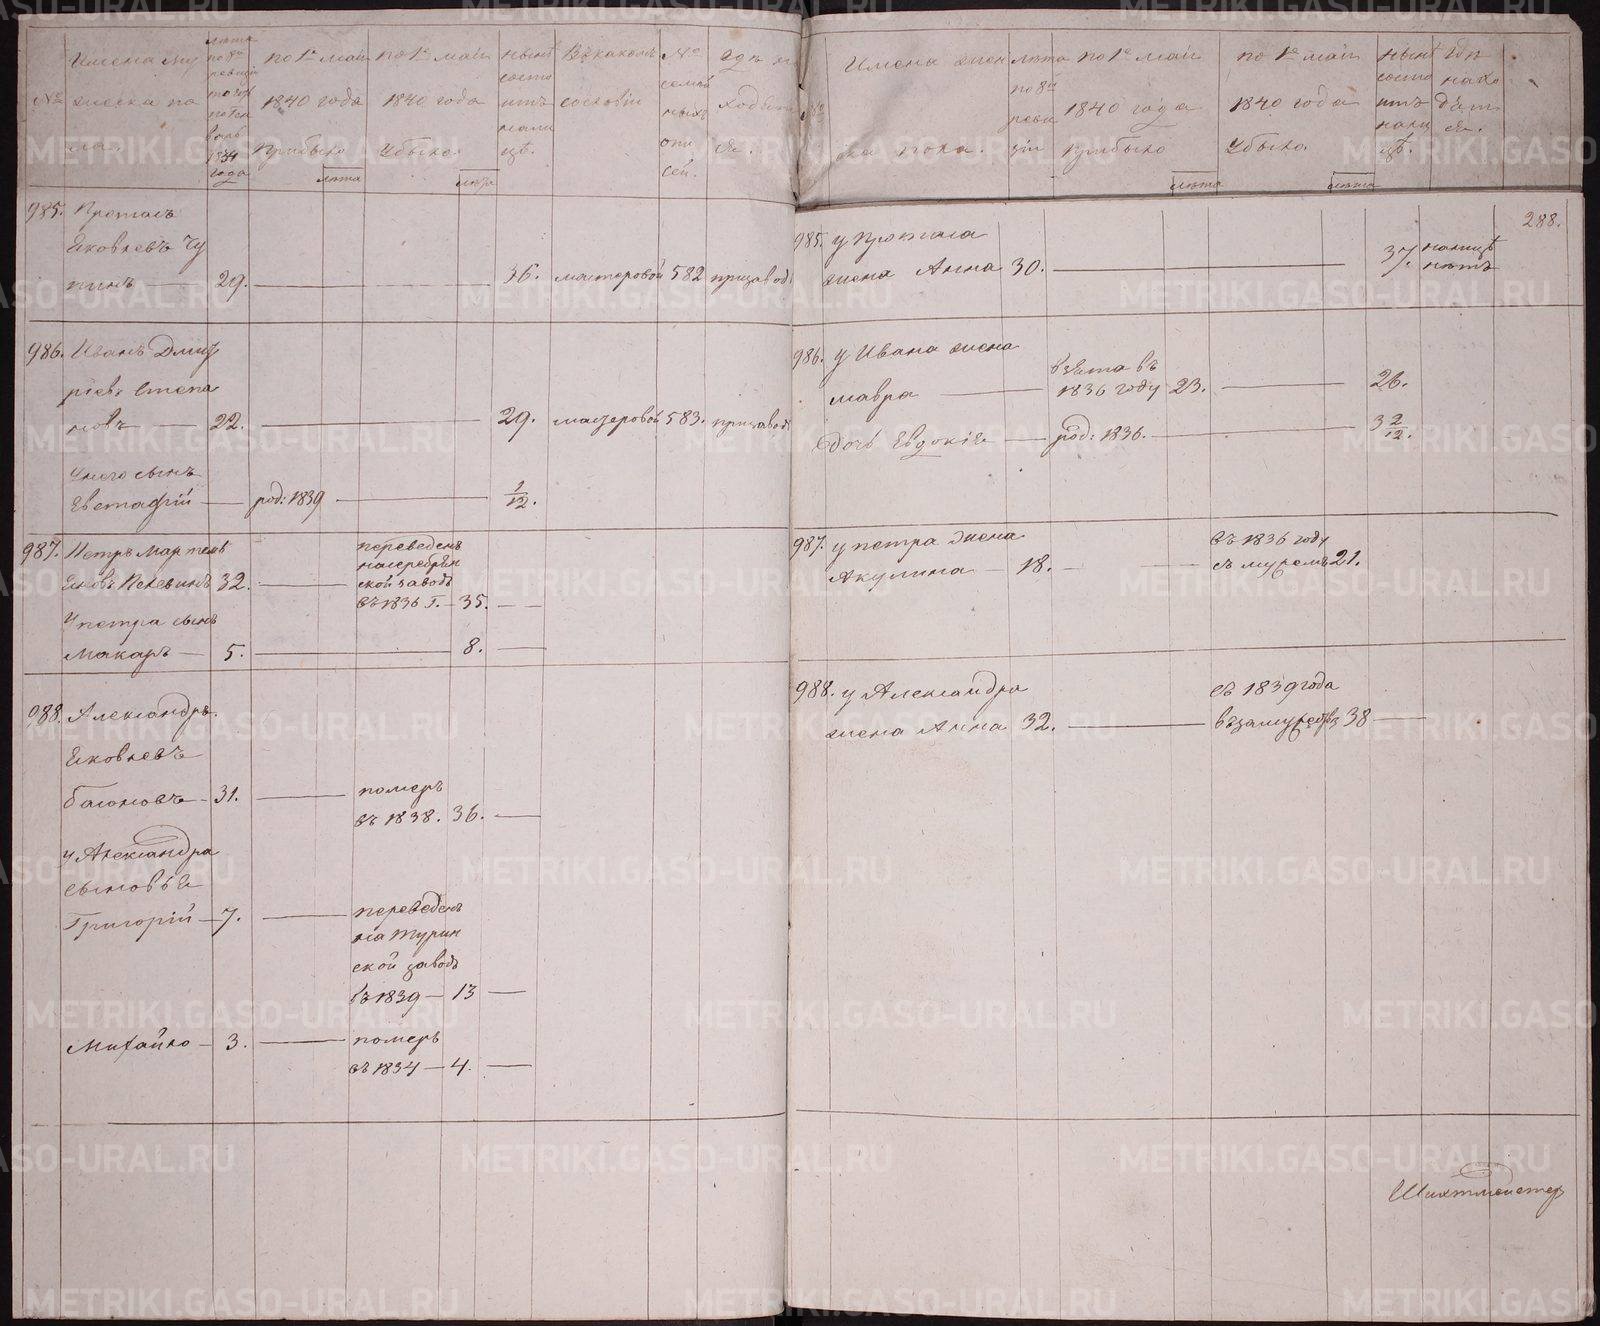 №
Имена му
жеска по
ла.
лета
по 8й
ревизи
1834
года
по 1е маи
1840 года
прибыло
лета
по 1е маи
1840 года
убыло
лета
ныне
состо
итъ
нали
це.
Въ какомъ
сословіи
№
семей
ныхъ
опи
сей.
Где на
ходятся
985.
Протасъ
Яковлевъ Чу
пинъ — 29. — 36. мастеровой 582 при заводе
986. Иванъ Дмит
ріевъ Степа
новъ — 22. — 29. мастеровой 583. при заводе
У него сынъ
Евстафій — род: 1839 — 1/12.
987. Петръ Мартемь
яновъ Пелевинъ 32. —
переведенъ
на серебрян
ской заводъ
въ 1836 г. — 35. —
У петра сынъ
Макаръ — 5. — 8. —
988. Александръ
Яковлевъ
Багоновъ — 31. —
померъ
въ 1838. 36. —
у Александра
сыновья
Григорій — 7. —
переведенъ
на Турин
ской заводъ
въ 1839 — 13 —
Михайло — 3. — померъ
въ 1834 — 4. —
№
Имена жен
ска пола.
лета
по 8й
реви
зіи
по 1е маи
1840 года
прибыло
лета
по 1е маи
1840 года
убыло
лета
ныне
состо
итъ
нали
це.
Где
нахо
дят
ся.
288.
985. у Протаса
жена Анна 30. — 37. налице
нетъ
986. у Ивана жена
мавра — взята въ
1836 году 23. — 26.
дочь Евдокія — род: 1836. — 3 2/12.
987. у петра жена
Акулина — 18. —
въ 1836 году
съ мужемъ 21.
988. у Александра
жена Анна 32. —
съ 1839 года
въ замужестве 38 —
Шихтмейстеръ
METRIKI.GASO-URAL.RU